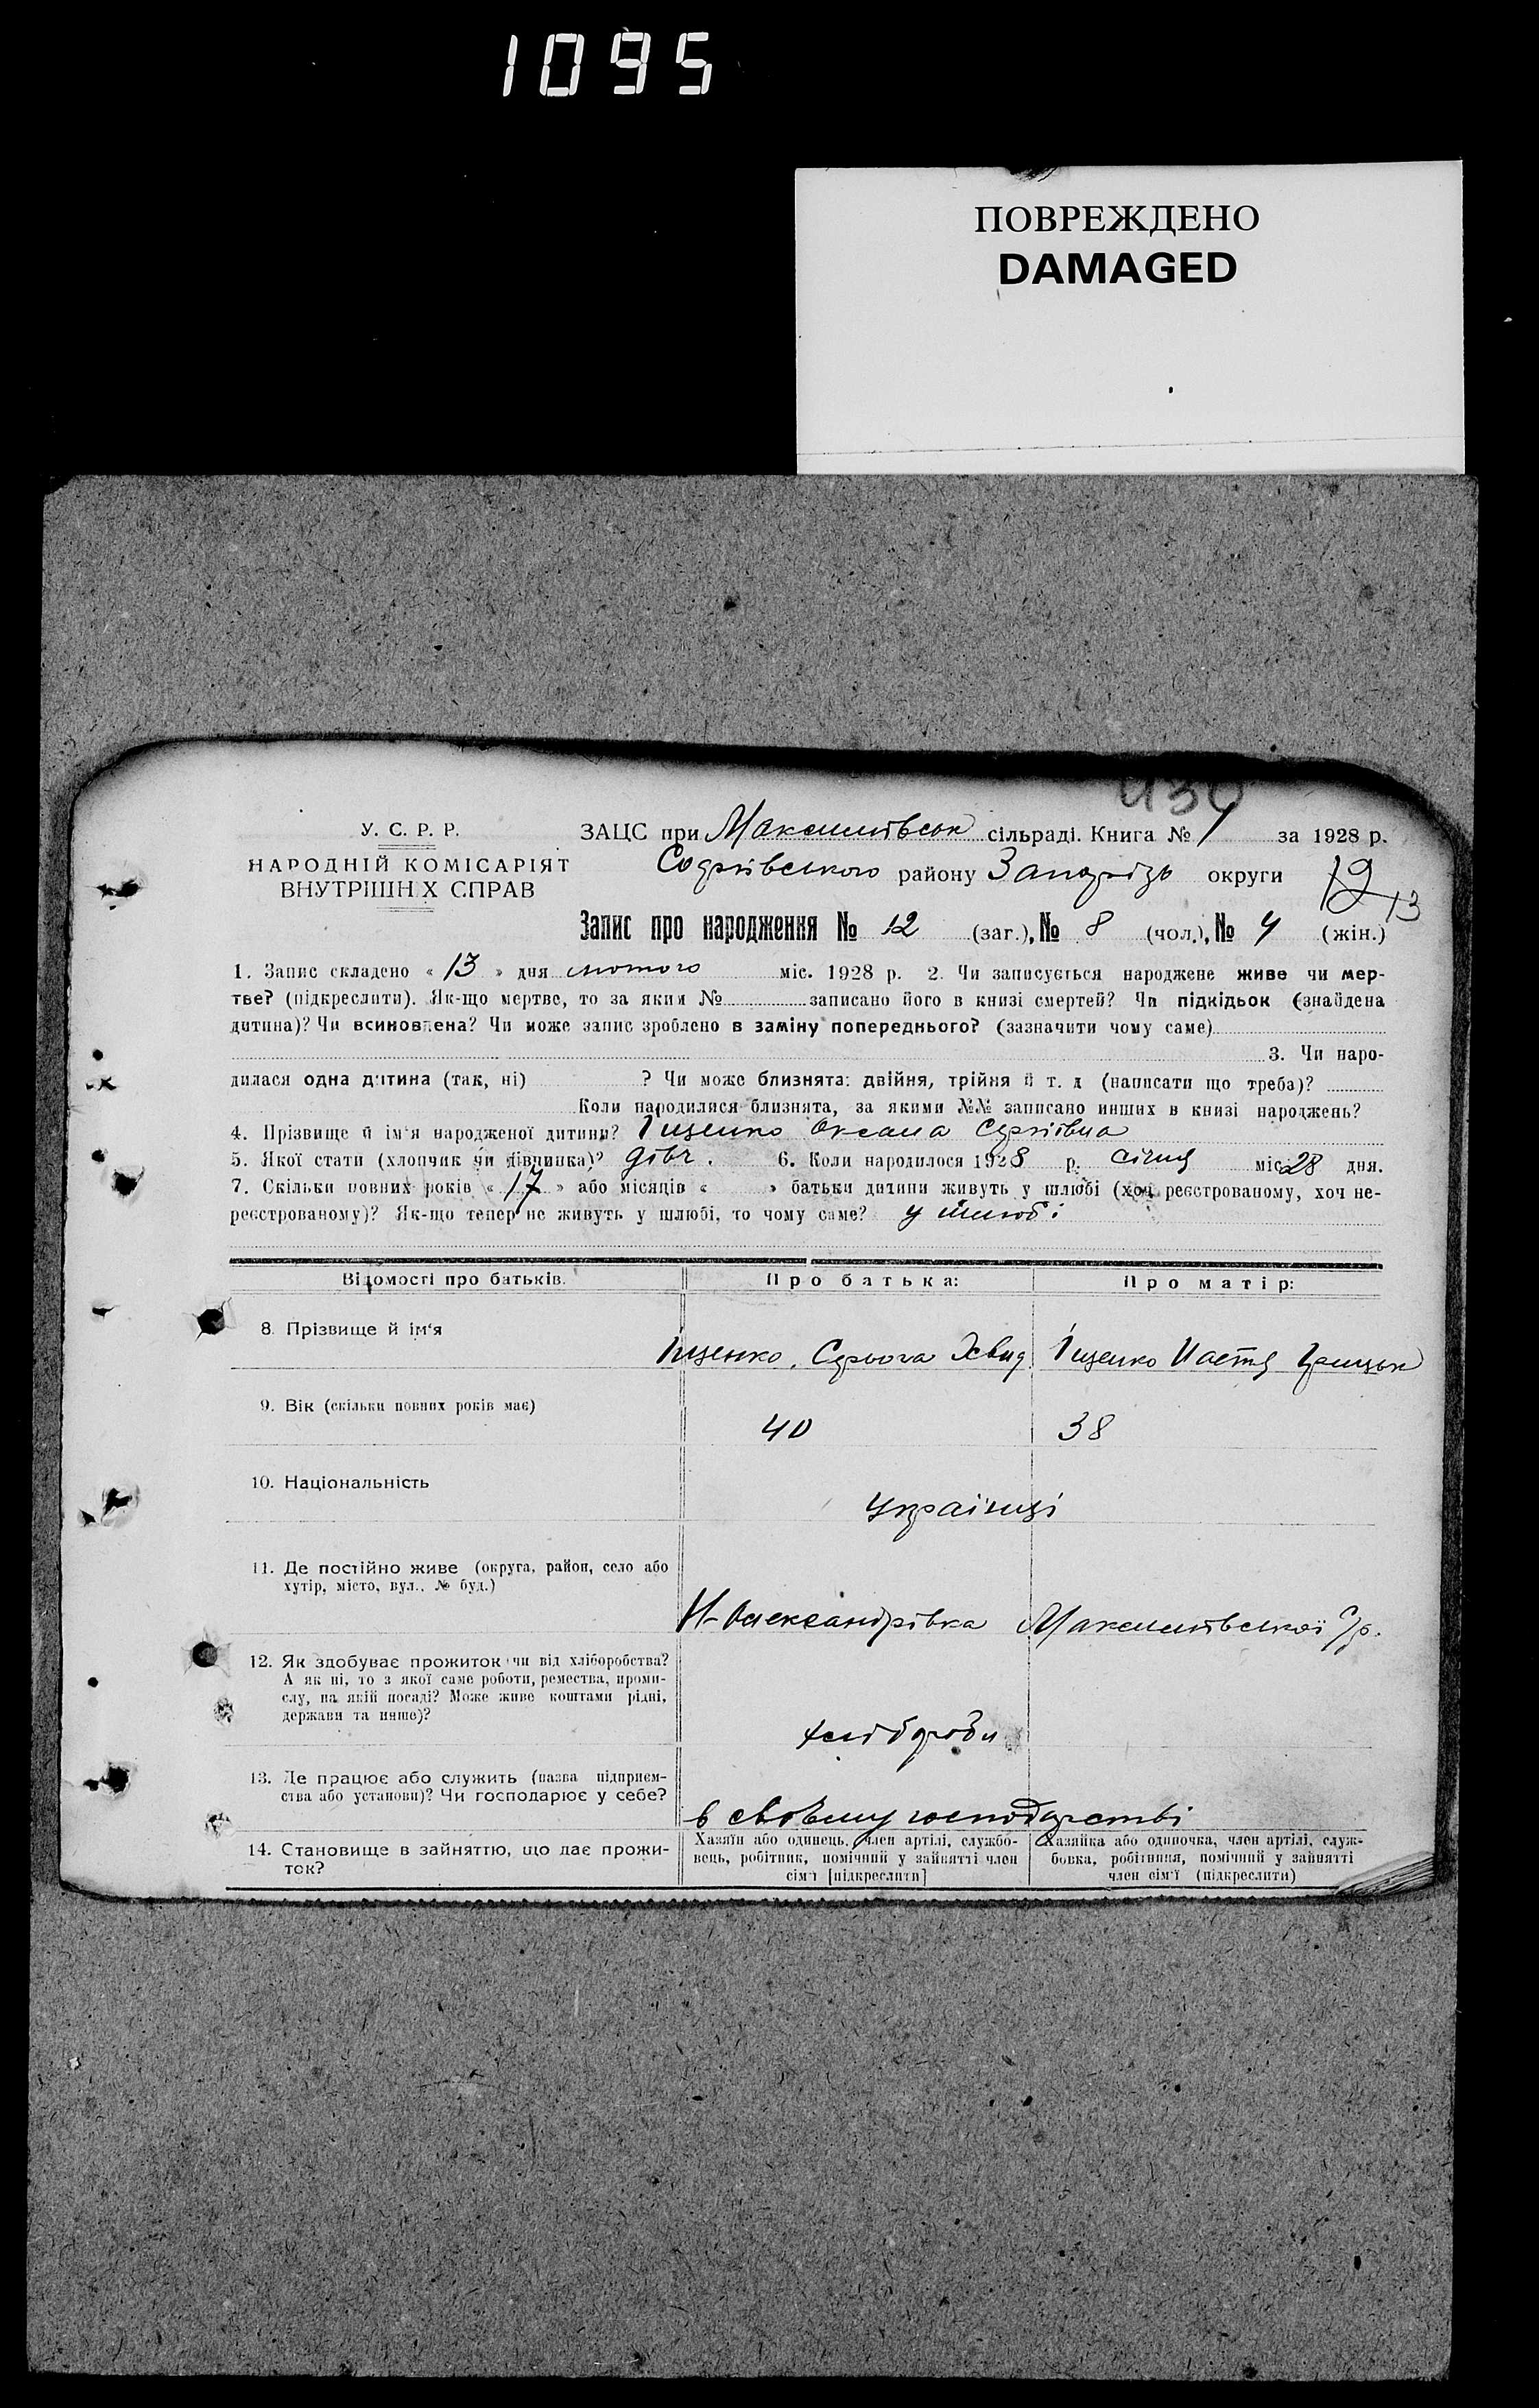 1095
ПОВРЕЖДЕНО
DAMAGED
430
У. С. Р. Р.
НАРОДНІЙ КОМІСАРІЯТ
ВНУТРІШНІХ СПРАВ
ЗАЦС при сільраді. Книга № 1 за 1928 р.
району Запорізь округи 12 13
Запис про народження № 12 (заг.), № 8 (чол.), № 4 (жін.)
1. Запис складено « 13 » дня лютого міс. 1928 р. 2. Чи записується народжене живе чи мер-
тве? (підкреслити). Як-що мертве, то за яким № записано його в книзі смертей? Чи підкідьок (знайдена
дитина)? Чи всиновлена? Чи може запис зроблено в заміну попереднього? (зазначити чому саме)
3. Чи наро-
дилася одна дитина (так, ні) ? Чи може близнята: двійня, трійня й т. д (написати що треба)?
Коли народилися близнята, за якими №№ записано инших в книзі народжень?
4. Прізвище й ім'я народженої дитини? Іщенко Оксана Сергіївна
5. Якої стати (хлопчик чи дівчинка)? дівч. 6. Коли народилося 1928 р. січня міс. 28 дня.
7. Скільки повних років « 17 » або місяців « » батьки дитини живуть у шлюбі (хоч реєстрованому, хоч не-
реєстрованому)? Як-що тепер не живуть у шлюбі, то чому саме? у шлюбі
Відомості про батьків.
Про батька:
Про матір:
8. Прізвище й ім'я
Іщенко Іщенко Настя
9. Вік (скільки повних років має)
40 38
10. Національність
Українці
11. Де постійно живе (округа, район, село або
хутір, місто, вул., № буд.)
Н-Олександрівка
12. Як здобуває прожиток чи від хліборобства?
А як ні, то з якої саме роботи, ремества, проми-
слу, на якій посаді? Може живе коштами рідні,
держави та инше)?
хлібороби
13. Де працює або служить (назва підприєм-
ства або установи)? Чи господарює у себе?
в своєму господарстві
14. Становище в зайняттю, що дає прожи-
ток?
Хазяїн або одинець, член артілі, службо-
вець, робітник, помічний у зайнятті член
сім'ї [підкреслити]
Хазяйка або одиночка, член артілі, служ-
бовка, робітниця, помічний у зайнятті
член сім'ї (підкреслити)